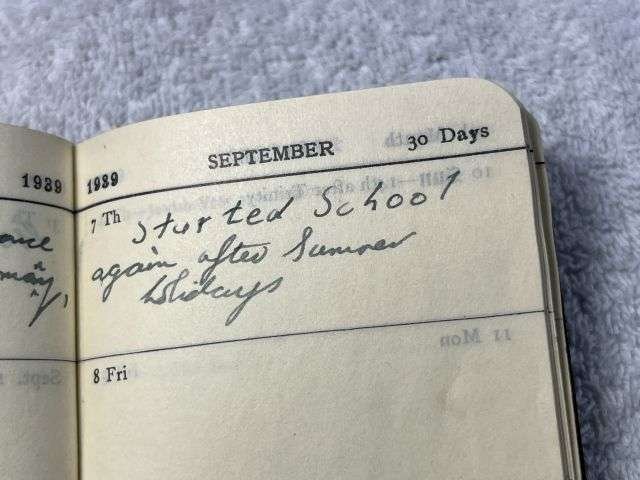 1939
1939 SEPTEMBER 30 Days
7 Th Started School
again after Summer
holidays
8 Fri
11 Mon
Sept.